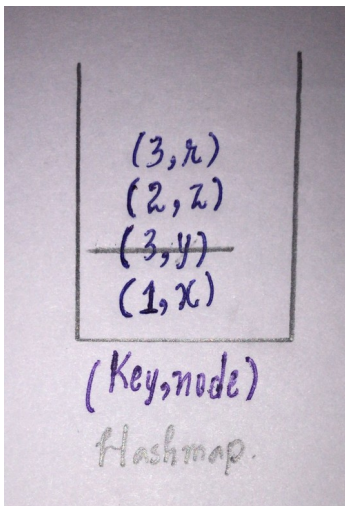 (3,r)
(2,z)
(3,y)
(1,x)
(Key,node)
Hashmap.